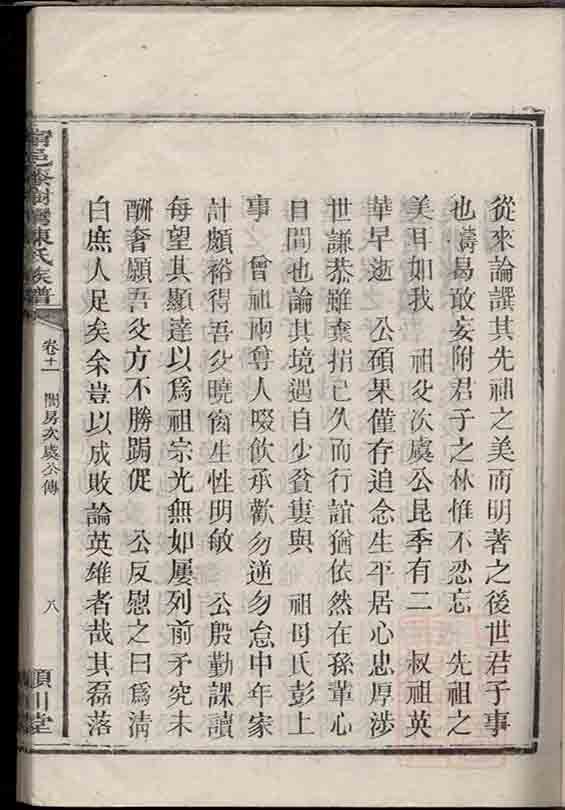 從來論譔其先祖之美而明著之後世君子事
也濤曷敢妄附君子之林惟不忍忘　先祖之
美耳如我　祖父次虞公昆季有二　叔祖英
華早逝　公碩果僅存追念生平居心忠厚涉
世謙恭雖棄捐已久而行誼猶依然在孫輩心
目間也論其境遇自少貧窶與　祖母氏彭上
事　曾祖兩尊人啜飲承歡勿逆勿怠中年家
計頗裕得吾父曉窗生性明敏　公殷勤課讀
每望其顯達以為祖宗光無如屢列前矛究未
酬奢願吾父方不勝跼促　公反慰之曰為清
白庶人足矣余豈以成敗論英雄者哉其磊落
邑 樹灣陳氏族譜
卷十一
房次虞公傳
八
潁川堂